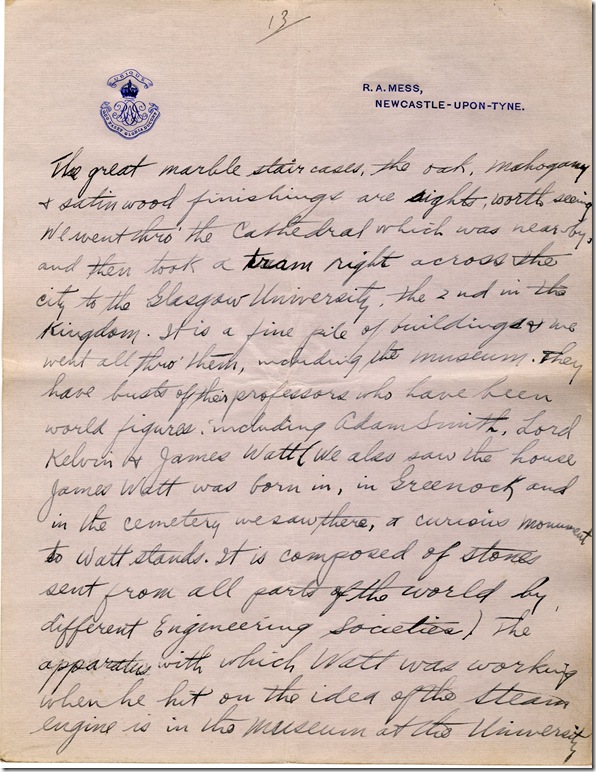 13
UBIQUE
R. A. MESS,
NEWCASTLE-UPON-TYNE.
The great marble staircases, the oak, mahogany
& satin wood finishings are sights, worth seeing
We went thro' the Cathedral which was near-by,
and then took a tram right across the
city to the Glasgow University, the 2nd in the
Kingdom. It is a fine pile of buildings & we
went all thro' them, including the museum. They
have busts of their professors who have been
world figures: including Adam Smith, Lord
Kelvin & James Watt (We also saw the house
James Watt was born in, in Greenock, and
in the cemetery we saw there, a curious monument
to Watt stands. It is composed of stones
sent from all parts of the world by
different Engineering Societies) The
apparatus, with which Watt was working
when he hit on the idea of the steam
engine is in the museum at the University